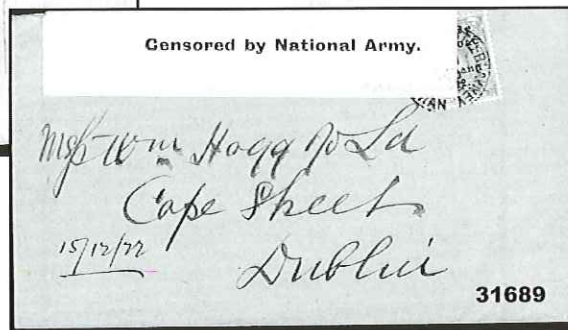 Censored by National Army.
Messrs Wm Hogg & Co Ld
Cope Street
15/12/22
Dublin
31689